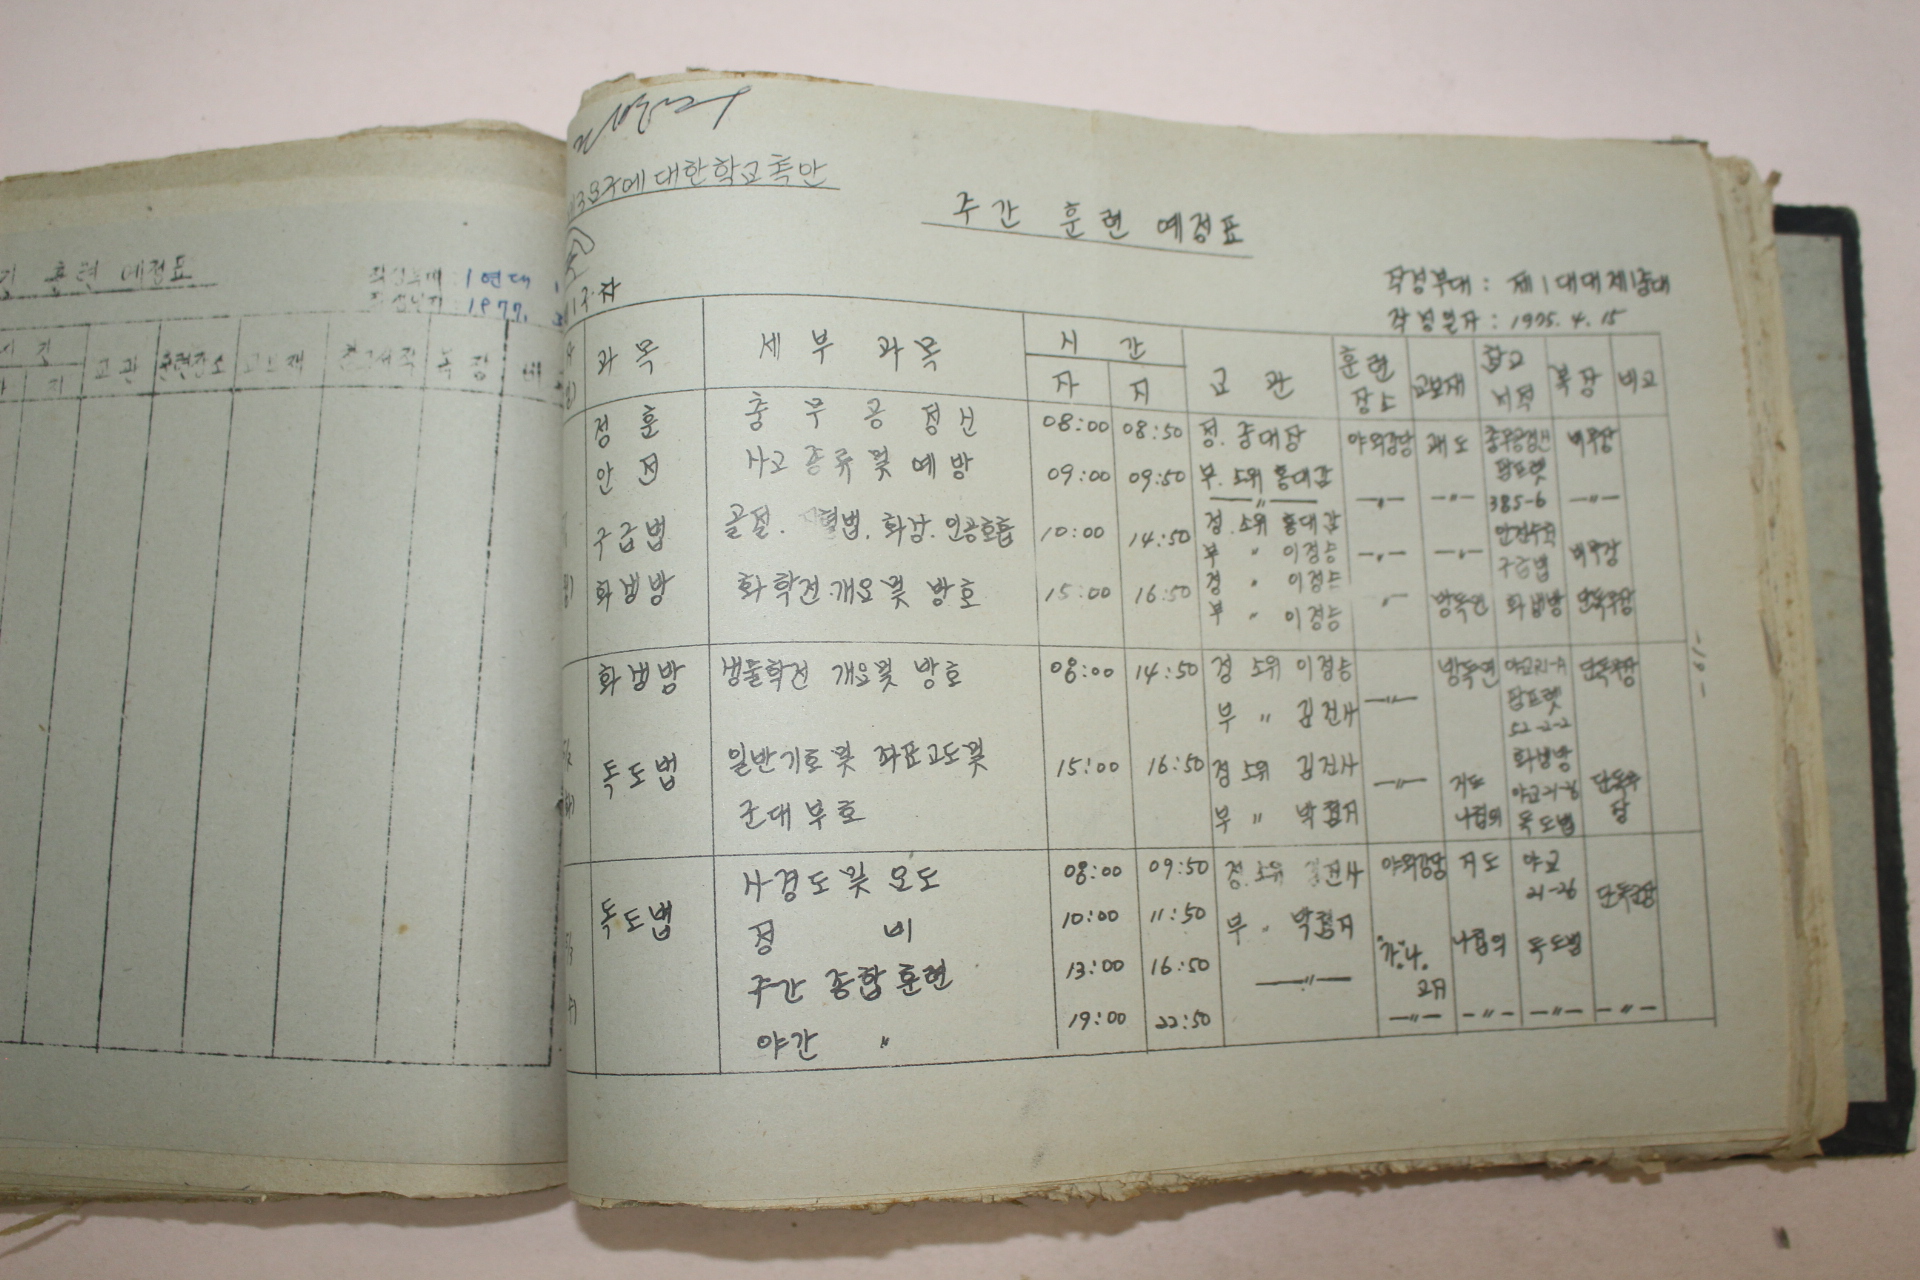 훈련 예정표
작성부대 : 1연대
작성일자 : 1977.
교관 훈련장소 교보재 참고서적 복장 비
대한학교측안
주간 훈련 예정표
작성부대 : 제1대대제1중대
작성일자 : 1975. 4. 15
과목 세부과목 시간 교관 훈련장소 교보재 참고서적 복장 비고
자 지
정훈 충무공정신 08:00 08:50 정. 중대장 야외강당 괘도 충무공정신 비무장
안전 사고종류및예방 09:00 09:50 부. 소위 홍대감 팜프렛
—〃— —〃— —〃— 385-6 —〃—
구급법 골절. 화상. 인공호흡 10:00 14:50 정. 소위 홍대감 안전수칙
부 〃 이경승 —〃— —〃— 구급법 비무장
화생방 화학전개요및 방호 15:00 16:50 정 〃 이경승
부 〃 이경승 〃 방독면 화생방 단독무장
화생방 생물학전 개요및 방호 08:00 14:50 정 소위 이경승 방독면 야교21-A 단독무장
부 〃 김진사 —〃— 팜프렛
52-2-2
독도법 일반기호및 좌표고도및 15:00 16:50 정 소위 김진사 —〃— 지도 화생방 단독무장
군대부호 부 〃 박점지 나침의 야교21-26
독도법
독도법 사경도및 오도 08:00 09:50 정. 소위 김진사 야외강당 지도 야교 21-26 단독무장
정비 10:00 11:50 부 〃 박점지 나침의 독도법
주간 종합훈련 13:00 16:50 —〃— "가.나. 고지
야간 〃 19:00 22:50 —〃— —〃— —〃— —〃—